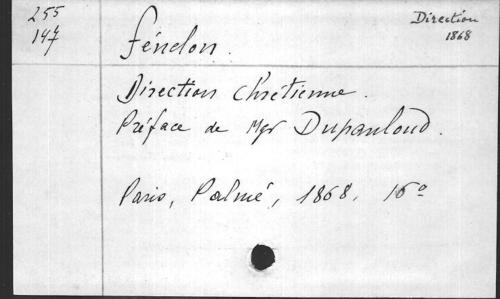 255
147
Direction
1868
fénelon.
Direction Chrétienne.
Préface de Mgr Dupanloud.
Paris, Palmé, 1868, 16º